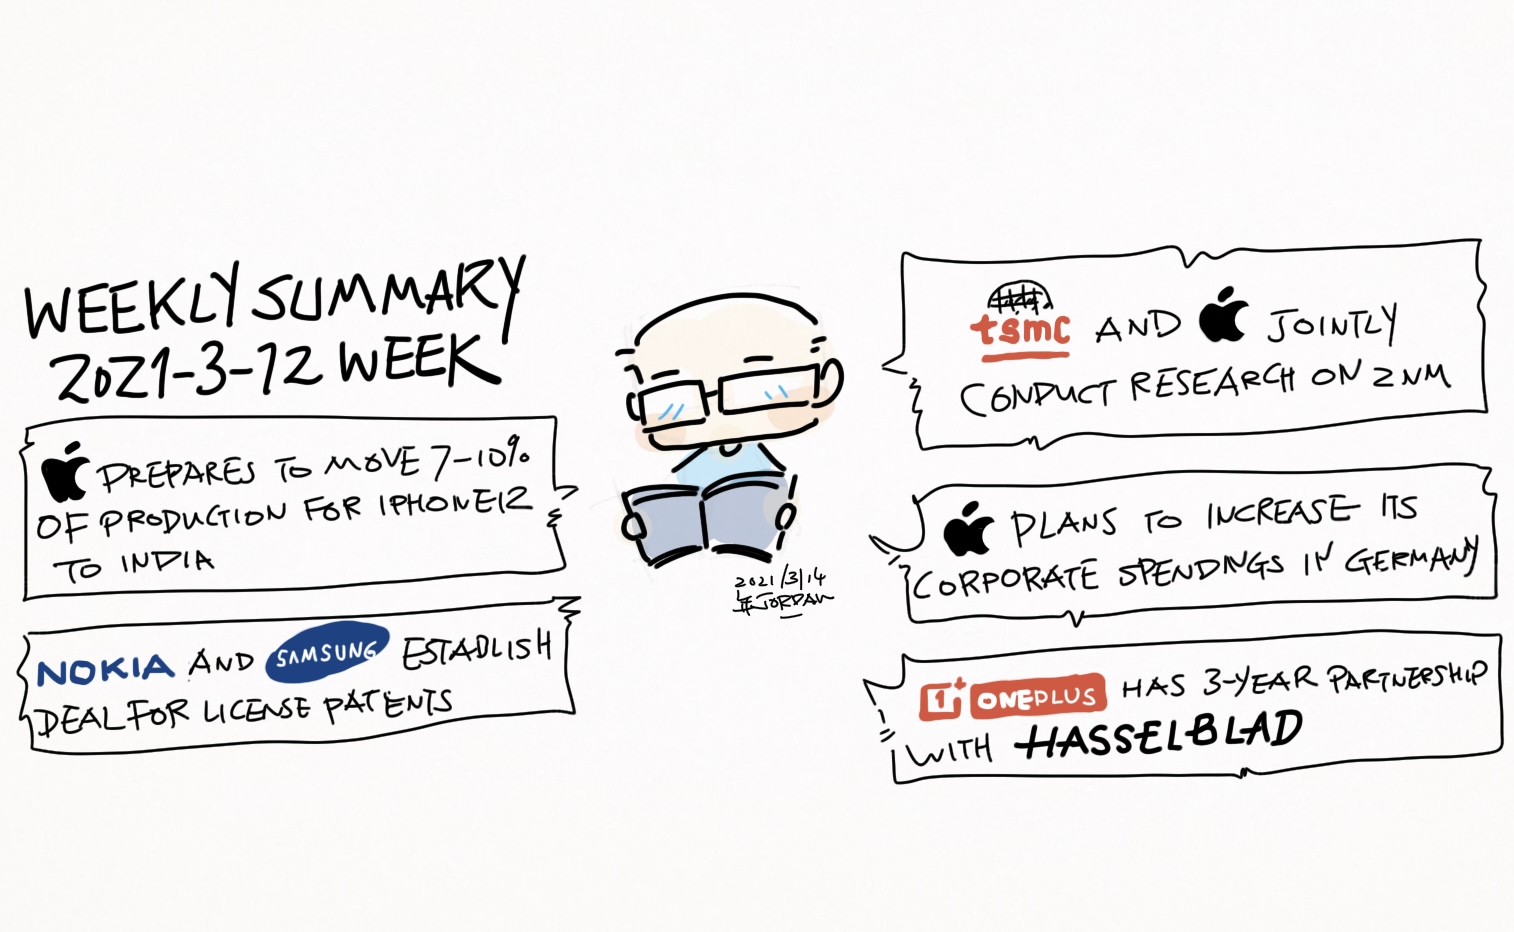 WEEKLY SUMMARY
2021-3-12 WEEK
PREPARES TO MOVE 7-10%
OF PRODUCTION FOR IPHONE12
TO INDIA
NOKIA AND SAMSUNG ESTABLISH
DEAL FOR LICENSE PATENTS
2021/3/14
JORDAN
tsmc AND JOINTLY
CONDUCT RESEARCH ON 2NM
PLANS TO INCREASE ITS
CORPORATE SPENDINGS IN GERMANY
1+ ONEPLUS HAS 3-YEAR PARTNERSHIP
WITH HASSELBLAD